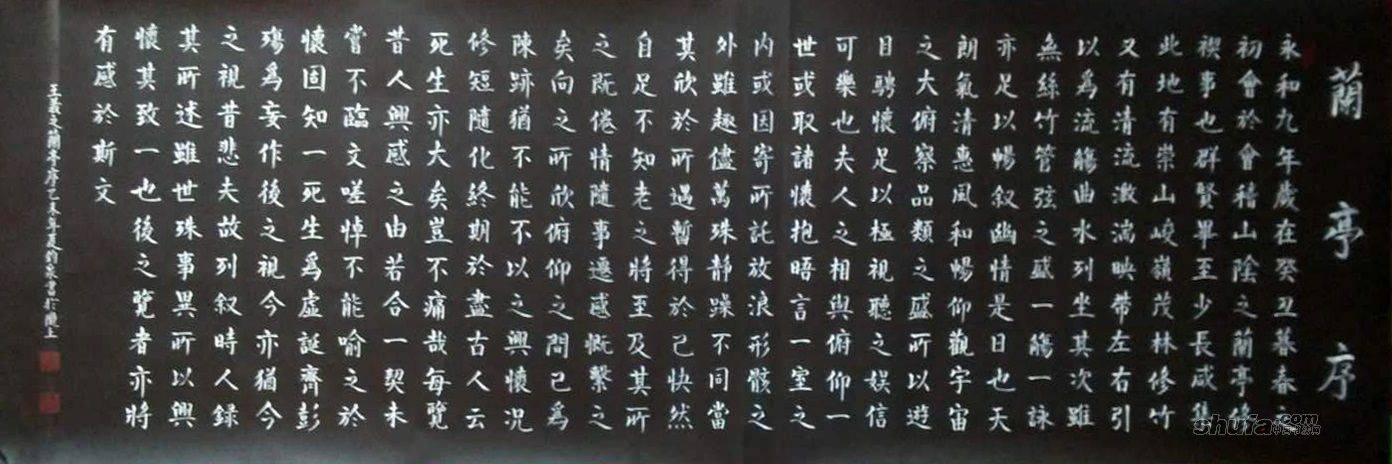 蘭亭序
永和九年歲在癸丑暮春之
初會於會稽山陰之蘭亭修
禊事也群賢畢至少長咸集
此地有崇山峻嶺茂林修竹
又有清流激湍映帶左右引
以爲流觴曲水列坐其次雖
無絲竹管弦之盛一觴一詠
亦足以暢叙幽情是日也天
朗氣清惠風和暢仰觀宇宙
之大俯察品類之盛所以遊
目騁懷足以極視聽之娱信
可樂也夫人之相與俯仰一
世或取諸懷抱晤言一室之
内或因寄所託放浪形骸之
外雖趣儘萬殊静躁不同當
其欣於所遇暫得於己快然
自足不知老之將至及其所
之既倦情隨事遷感慨繫之
矣向之所欣俯仰之間已爲
陳跡猶不能不以之興懷况
修短隨化終期於盡古人云
死生亦大矣豈不痛哉每覽
昔人興感之由若合一契未
嘗不臨文嗟悼不能喻之於
懷固知一死生爲虛誕齊彭
殤爲妄作後之視今亦猶今
之視昔悲夫故列叙時人録
其所述雖世殊事異所以興
懷其致一也後之覽者亦將
有感於斯文
王羲之蘭亭序乙未年夏
shufa.com